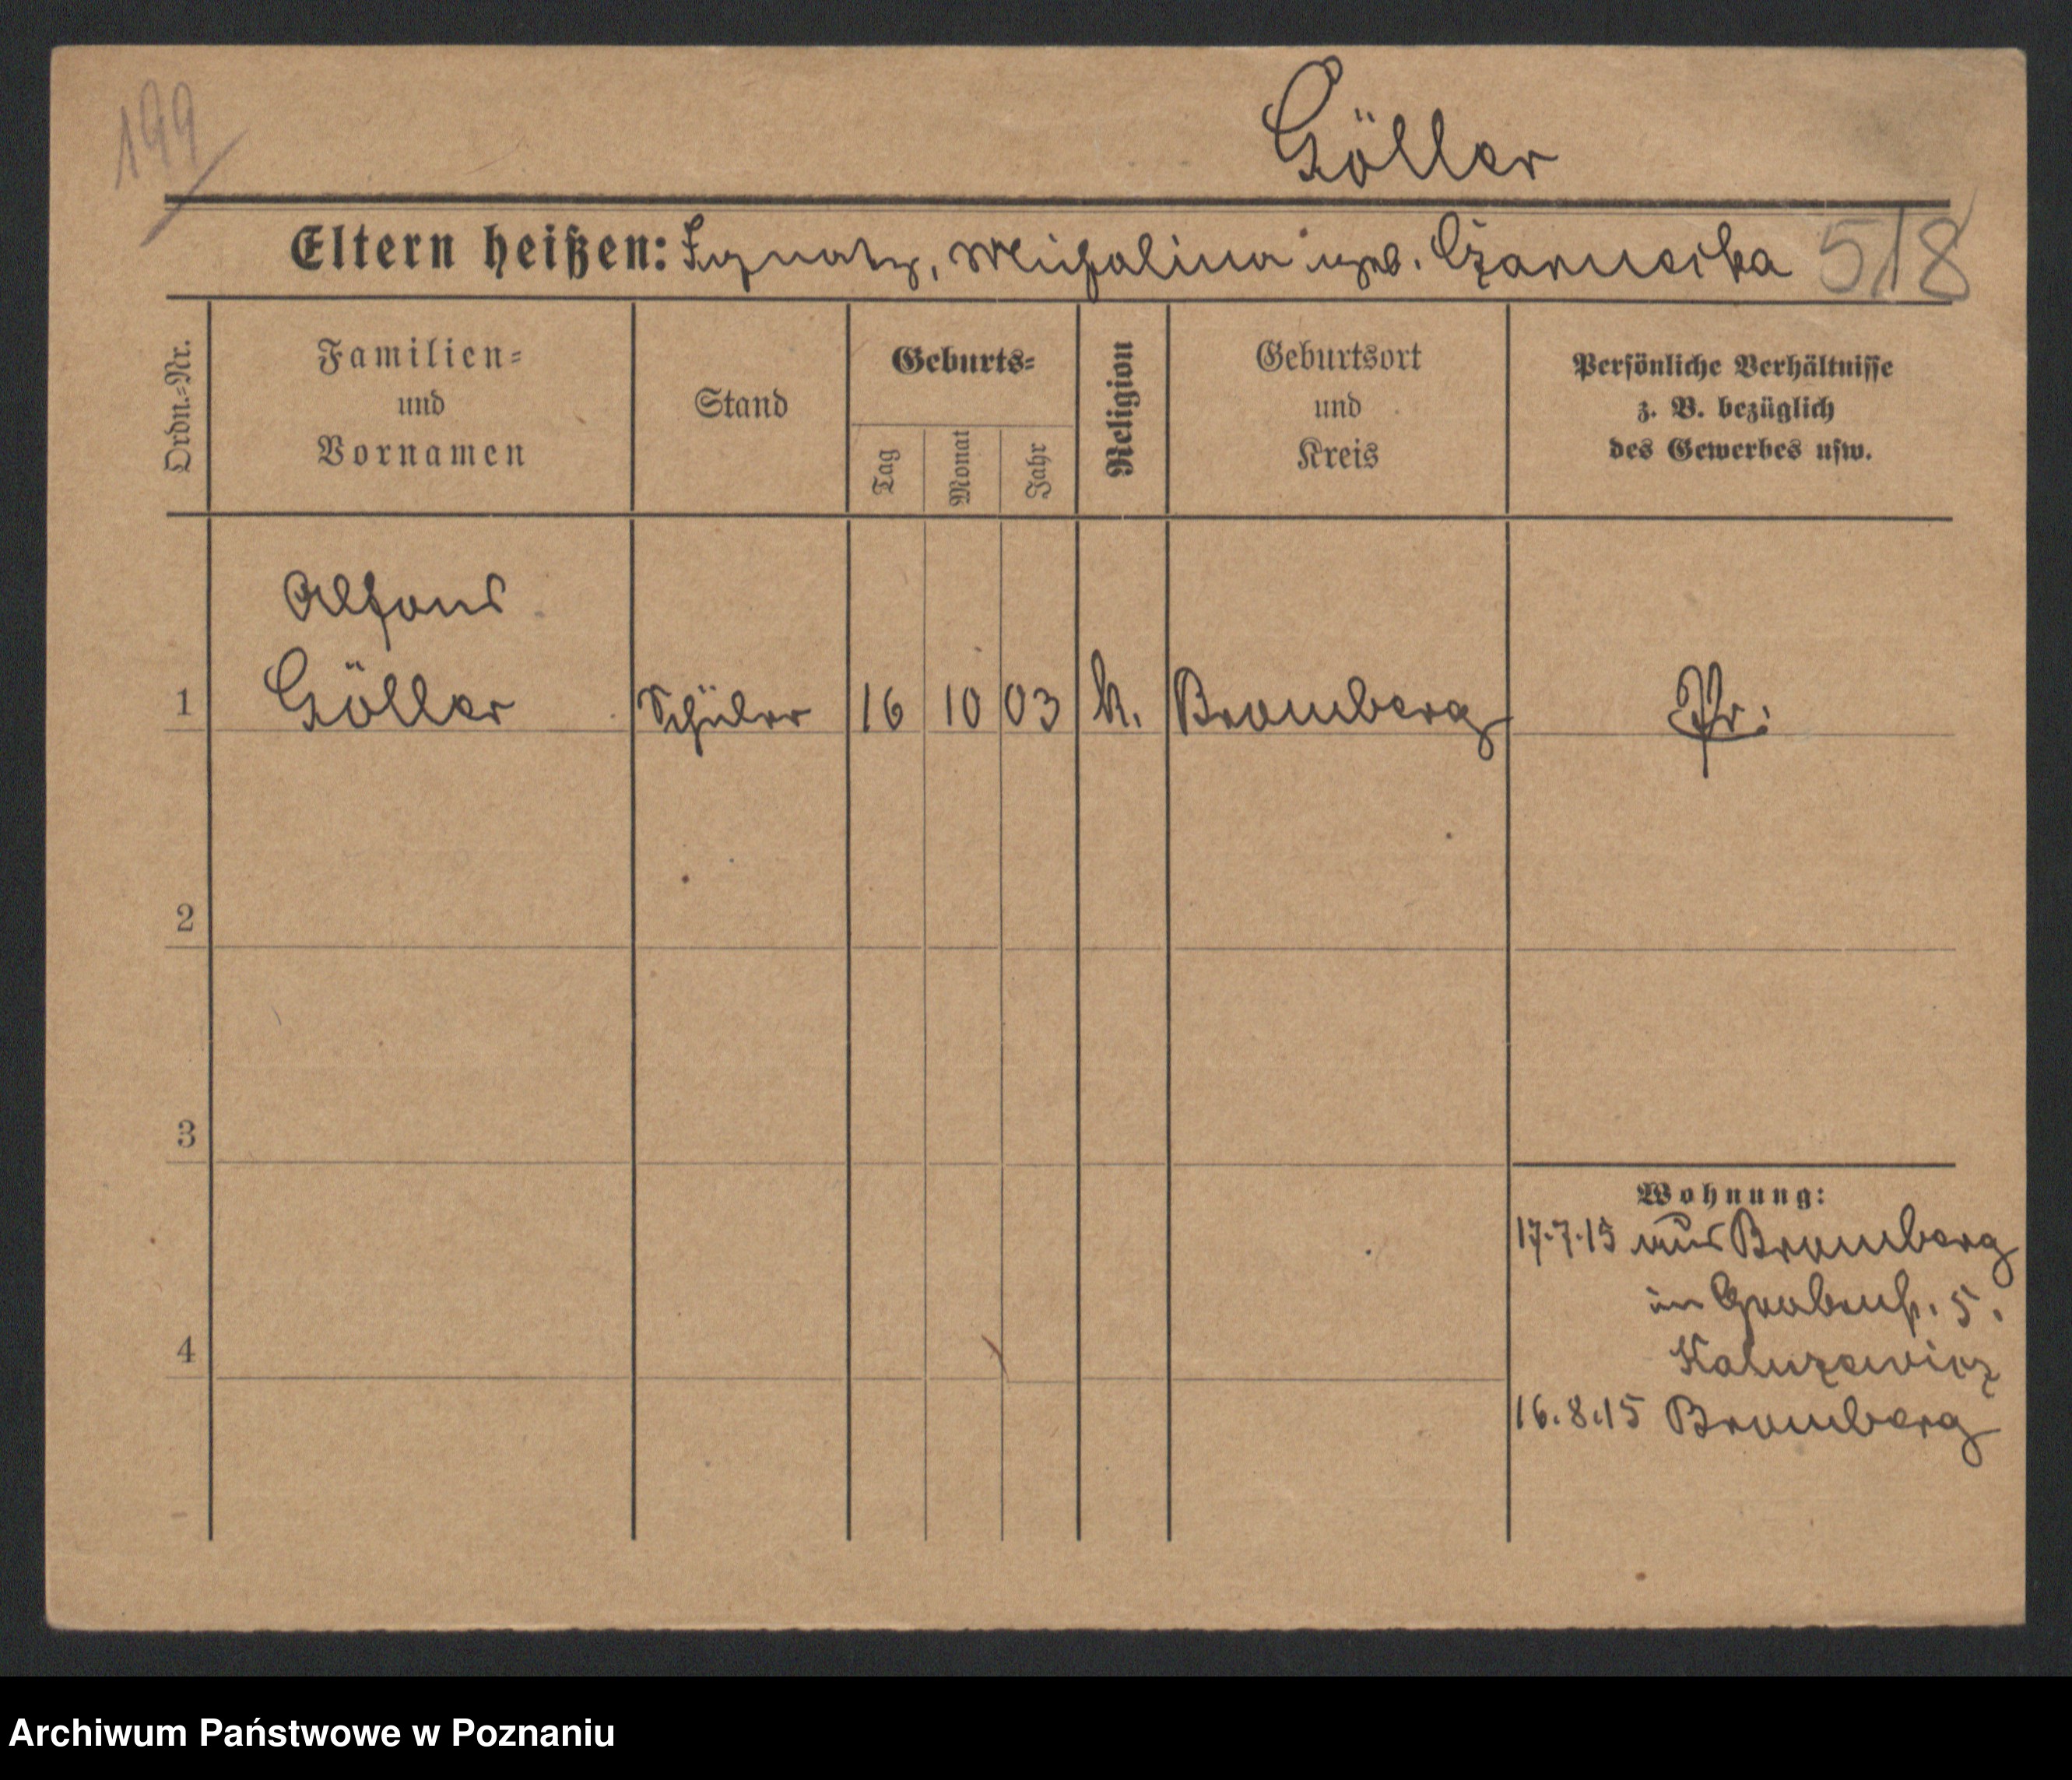 199
Göller
Eltern heißen: Ignatz, Michalina geb. Czarnecka 518
Ordn.=Nr.
Familien=
und
Vornamen
Stand
Geburts=
Tag
Monat
Jahr
Religion
Geburtsort
und
Kreis
Persönliche Verhältnisse
z. B. bezüglich
des Gewerbes usw.
Alfons
1 Göller Schüler 16 10 03 k. Bromberg Pr.
2
3
4
Wohnung:
17.7.15 aus Bromberg
in Grabenstr. 5.
16.8.15 Bromberg
Archiwum Państwowe w Poznaniu